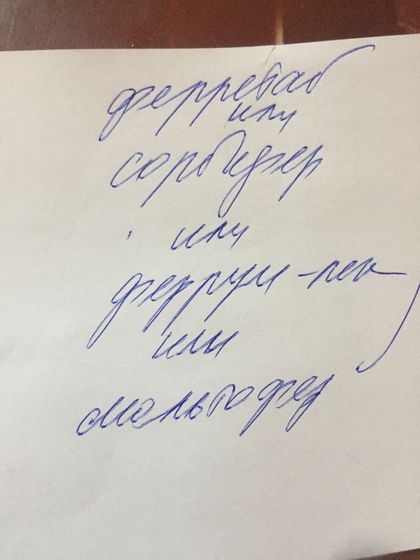 ферретаб
или
сорбифер
или
феррум-лек
или
мальтофер